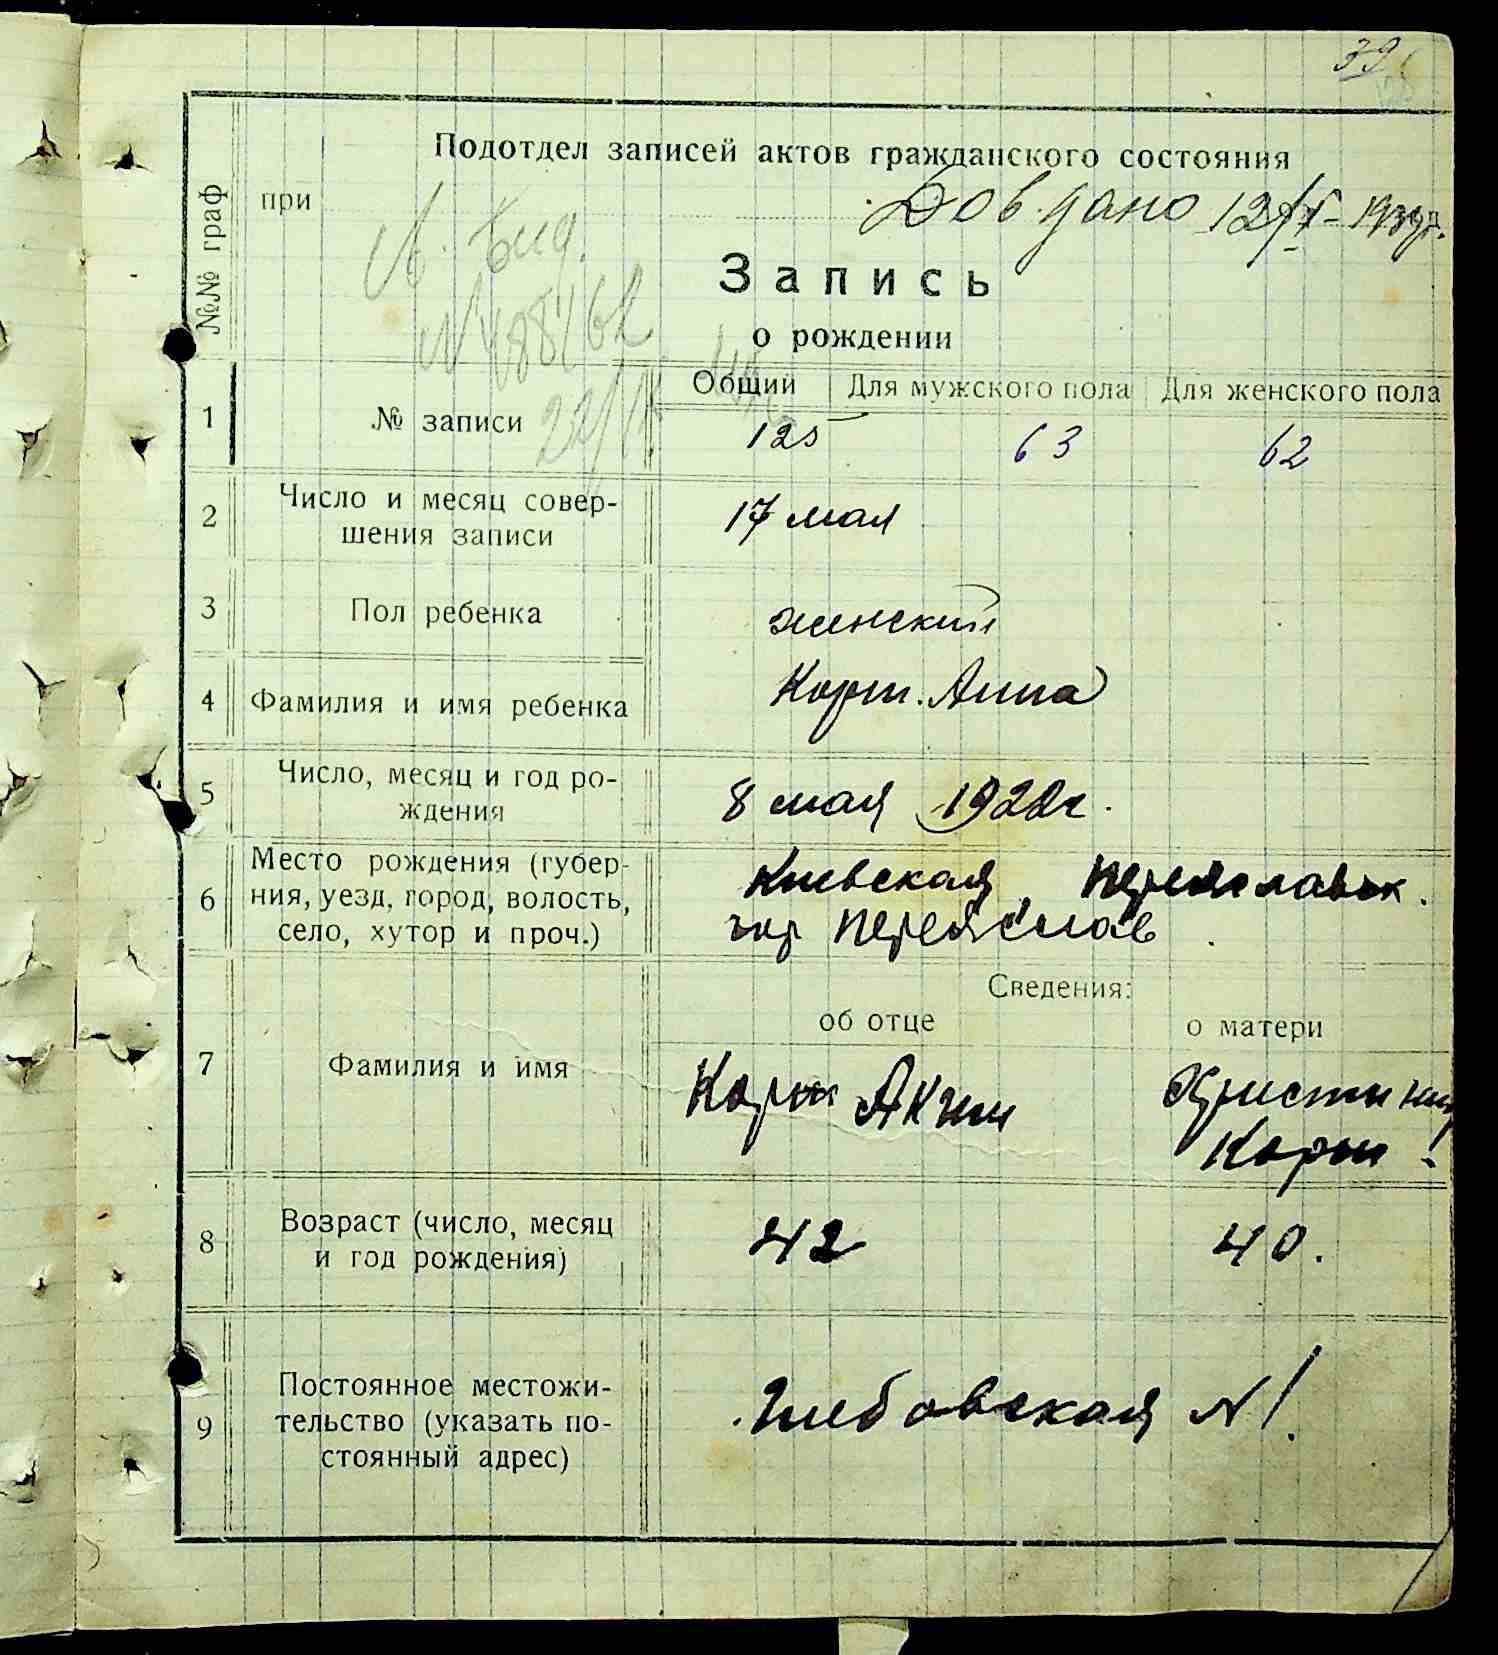 39
Подотдел записей актов гражданского состояния
№№ граф
при
Дов. дано 12/
Запись
о рождении
Общий Для мужского пола Для женского пола
1 № записи 125 63 62
2 Число и месяц совер-
шения записи
17 мая
3 Пол ребенка женский
4 Фамилия и имя ребенка Корж. Анна
5 Число, месяц и год ро-
ждения
8 мая 1922г.
6 Место рождения (губер-
ния, уезд, город, волость,
село, хутор и проч.)
Киевская, Переяславск.
гор Переяслав
Сведения:
об отце о матери
7 Фамилия и имя
Корж Аким Христина
Корж
8 Возраст (число, месяц
и год рождения)
42 40.
9 Постоянное местожи-
тельство (указать по-
стоянный адрес)
Глебовская №1